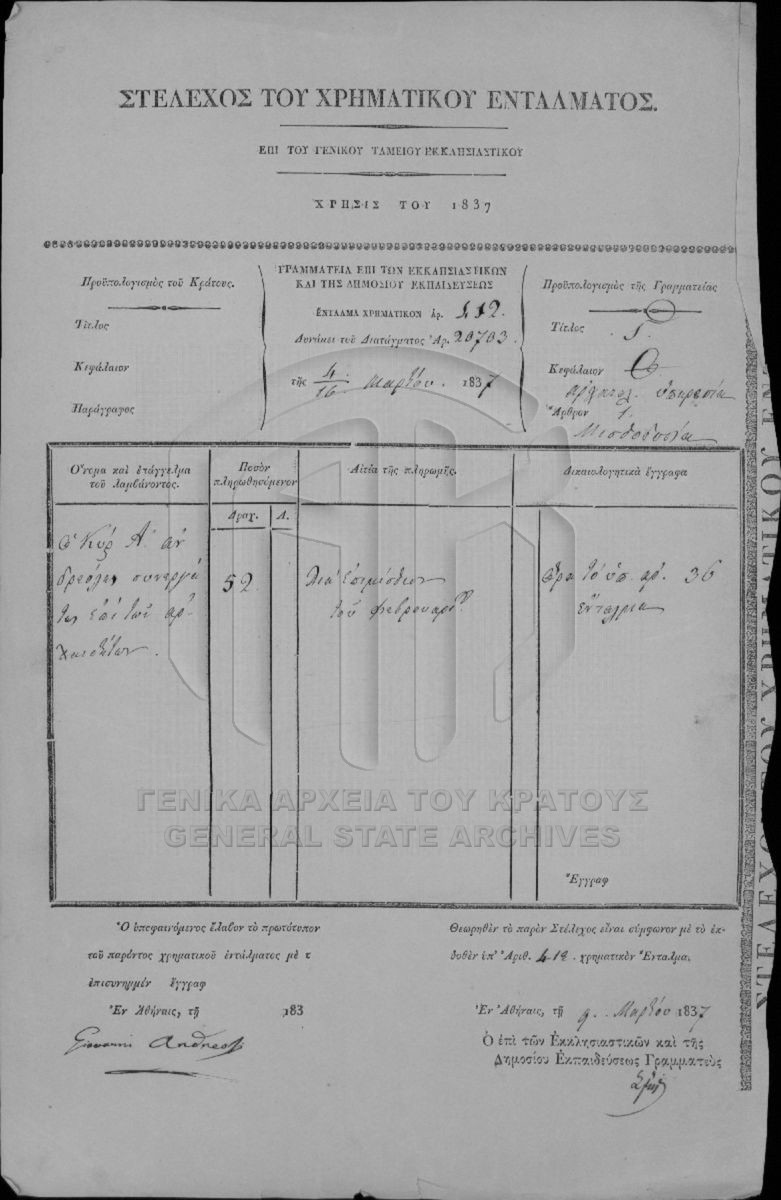 ΣΤΕΛΕΧΟΣ ΤΟΥ ΧΡΗΜΑΤΙΚΟΥ ΕΝΤΑΛΜΑΤΟΣ.
ΕΠΙ ΤΟΥ ΓΕΝΙΚΟΥ ΤΑΜΕΙΟΥ ΕΚΚΛΗΣΙΑΣΤΙΚΟΥ
ΧΡΗΣΙΣ ΤΟΥ 1837
Προϋπολογισμὸς τοῦ Κράτους.
Τίτλος
Κεφάλαιον
Παράγραφος
ΓΡΑΜΜΑΤΕΙΑ ΕΠΙ ΤΩΝ ΕΚΚΛΗΣΙΑΣΤΙΚΩΝ
ΚΑΙ ΤΗΣ ΔΗΜΟΣΙΟΥ ΕΚΠΑΙΔΕΥΣΕΩΣ
ΕΝΤΑΛΜΑ ΧΡΗΜΑΤΙΚΟΝ ἀρ. 412
Δυνάμει τοῦ Διατάγματος Ἀρ. 20703.
τῆς 4/16 Μαρτίου. 1837
Προϋπολογισμὸς τῆς Γραμματείας
Τίτλος 5.
Κεφάλαιον 6
ὑπηρεσία
Ἄρθρον 1.
Μισθοδοσία
Ὄνομα καὶ ἐπάγγελμα
τοῦ λαμβάνοντος.
Ποσὸν
πληρωθησόμενον
Δραχ. Λ.
Αἰτία τῆς πληρωμῆς.
Δικαιολογητικὰ ἔγγραφα
ὁ Κύρ Α. Ἀν
52
Διὰ ἐπιμίσθιον
τοῦ Φεβρουαρίου
Ὅρα τὸ ὑπ. ἀρ. 36
ἔνταλμα
Ἔγγραφ
Ὁ ὑποφαινόμενος ἔλαβον τὸ πρωτότυπον
τοῦ παρόντος χρηματικοῦ ἐντάλματος μὲ τ
ἐπισυνημμέν ἔγγραφ
Ἐν Ἀθήναις, τῇ 183
Giovanni Andreoli
Θεωρηθὲν τὸ παρὸν Στέλεχος εἶναι σύμφωνον μὲ τὸ ἐκ-
δοθὲν ὑπ' Ἀριθ. 412. χρηματικὸν Ἔνταλμα.
Ἐν Ἀθήναις, τῇ 9. Μαρτίου 1837
Ὁ ἐπὶ τῶν Ἐκκλησιαστικῶν καὶ τῆς
Δημοσίου Ἐκπαιδεύσεως Γραμματεὺς
ΓΕΝΙΚΑ ΑΡΧΕΙΑ ΤΟΥ ΚΡΑΤΟΥΣ
GENERAL STATE ARCHIVES
ΣΤΕΛΕΧΟΣ ΤΟΥ ΧΡΗΜΑΤΙΚΟΥ ΕΝΤ